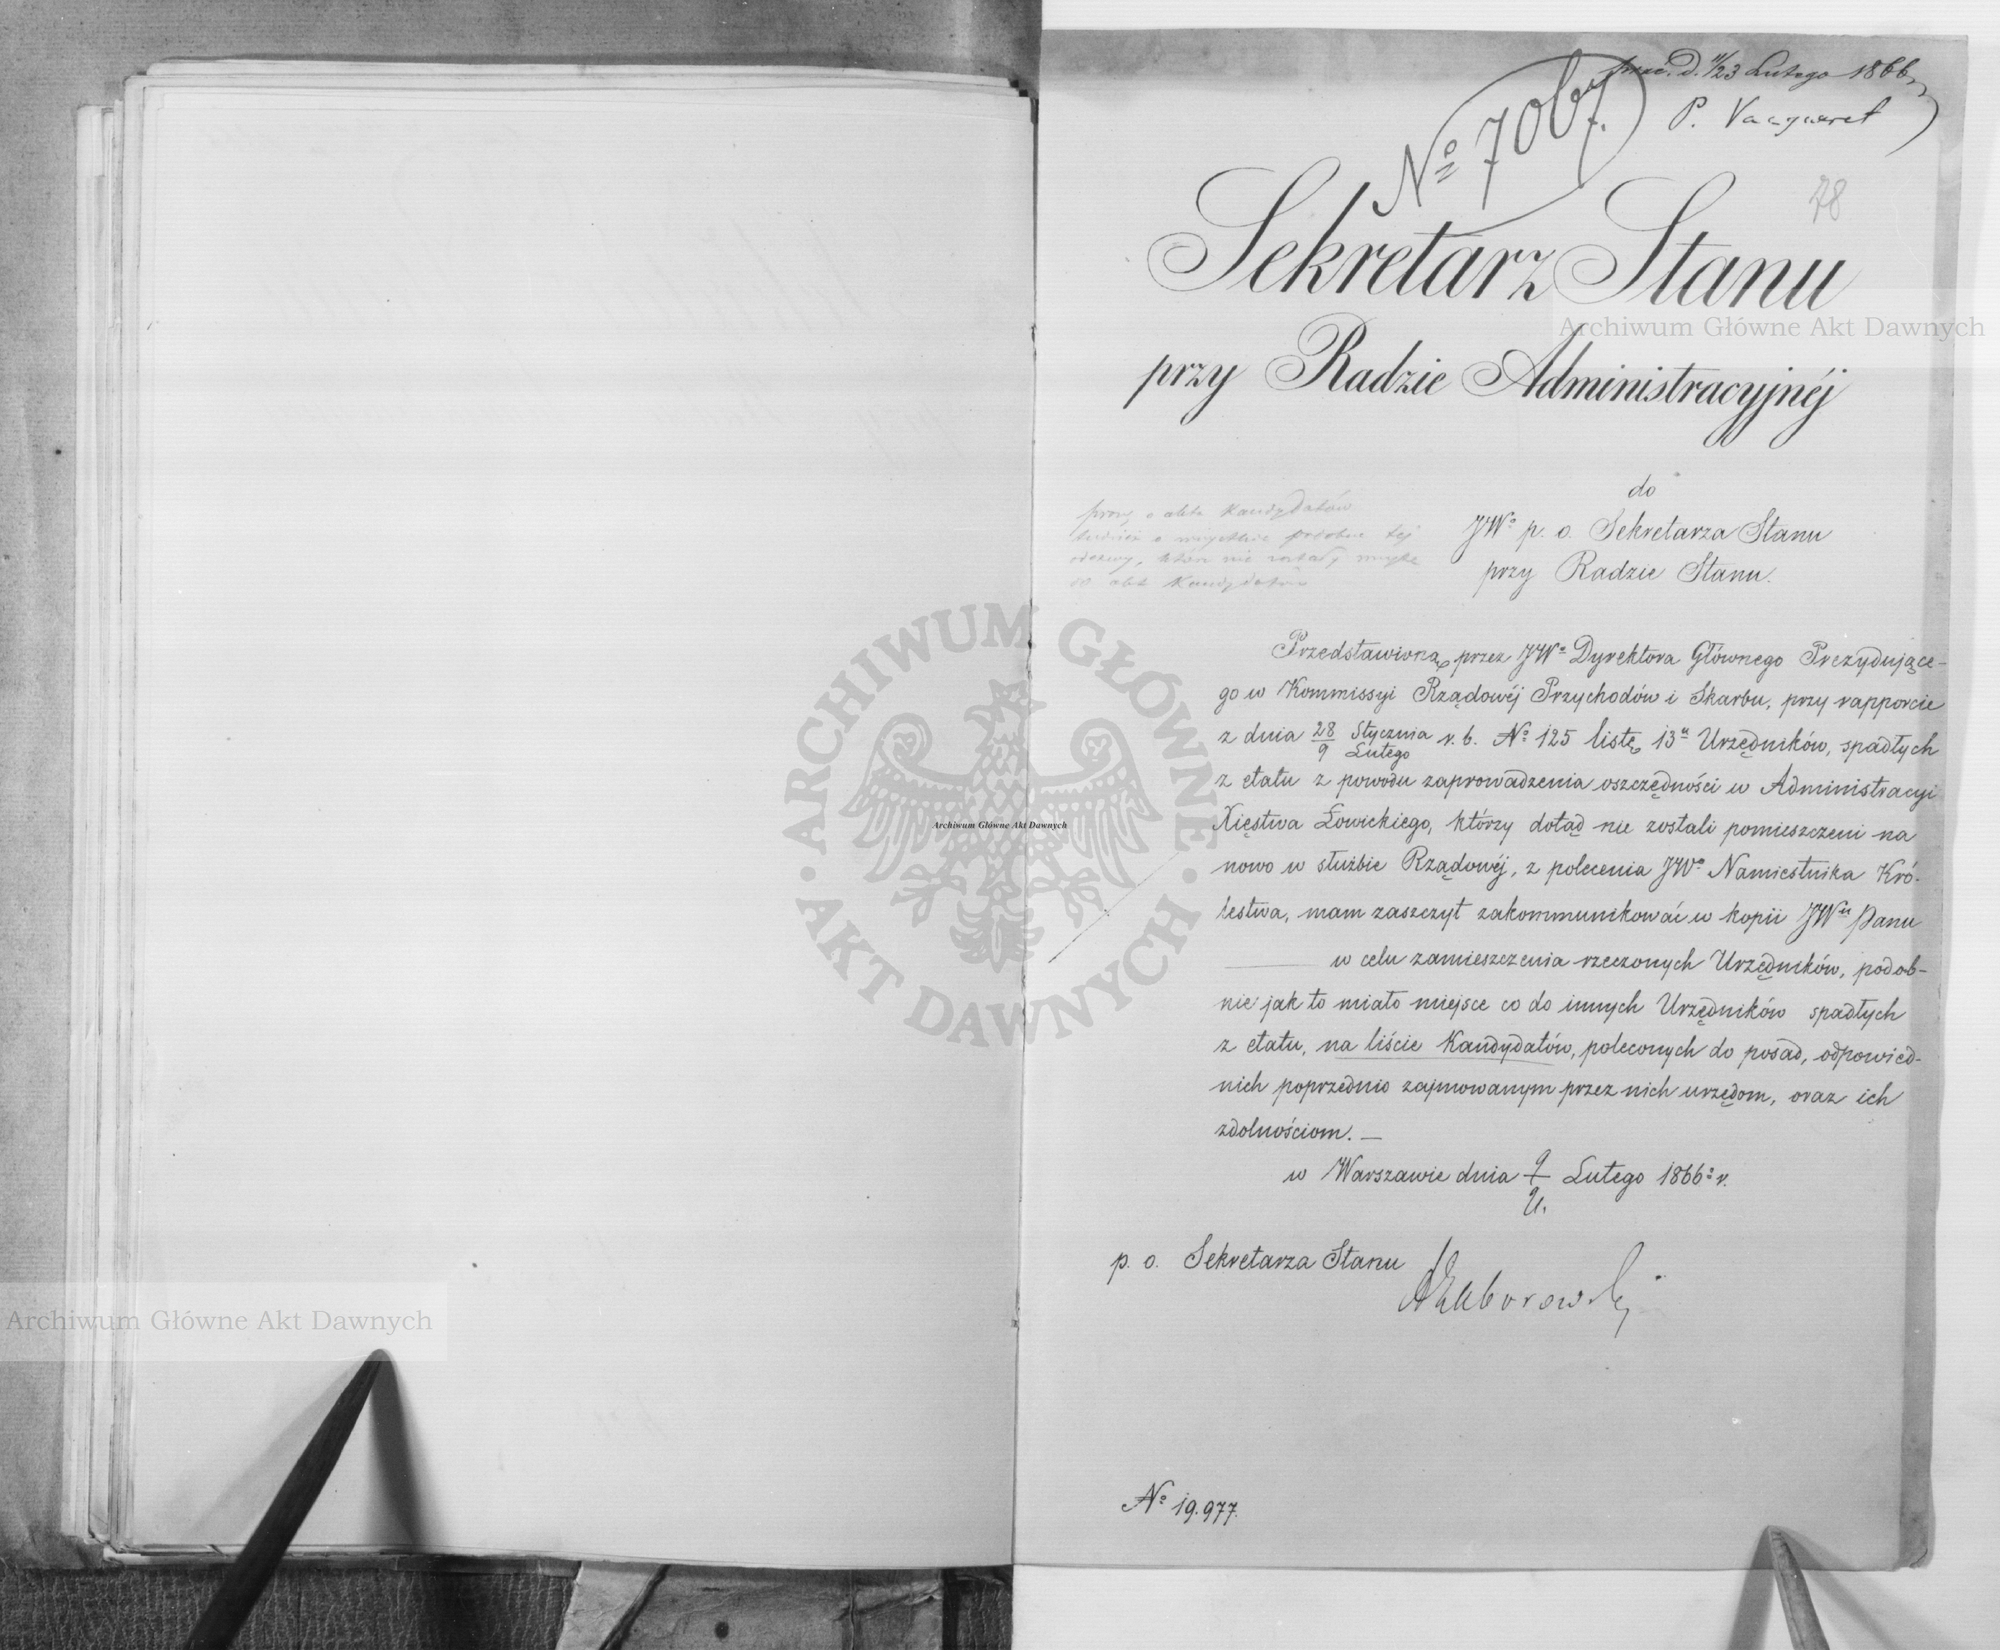 prez. d. 11/23 Lutego 1866
P. Vacqueret
№ 7067.
78
Sekretarz Stanu
przy Radzie Administracyjnéj
do
JWº p. o. Sekretarza Stanu
przy Radzie Stanu.
proszę o akta Kandydatów
tudzież o wszystkie podobne tej
odezwy, które nie
do akt Kandydatów
Przedstawioną przez JWº Dyrektora Głównego Prezydujące-
go w Kommissyi Rządowéj Przychodów i Skarbu, przy rapporcie
z dnia 28 Stycznia / 9 Lutego r. b. № 125 listę 13u Urzędników, spadłych
z etatu z powodu zaprowadzenia oszczędności w Administracyi
Xięstwa Łowickiego, którzy dotąd nie zostali pomieszczeni na
nowo w służbie Rządowéj, z polecenia JWº Namiestnika Kró-
lestwa, mam zaszczyt zakommunikować w kopii JWu Panu
w celu zamieszczenia rzeczonych Urzędników, podob-
nie jak to miało miejsce co do innych Urzędników spadłych
z etatu, na liście Kandydatów, poleconych do posad, odpowied-
nich poprzednio zajmowanym przez nich urzędom, oraz ich
zdolnościom. —
w Warszawie dnia 9/21 Lutego 1866 r.
p. o. Sekretarza Stanu
Zaborowski
№ 19.977.
Archiwum Główne Akt Dawnych
Archiwum Główne Akt Dawnych
Archiwum Główne Akt Dawnych
ARCHIWUM GŁÓWNE · AKT DAWNYCH ·